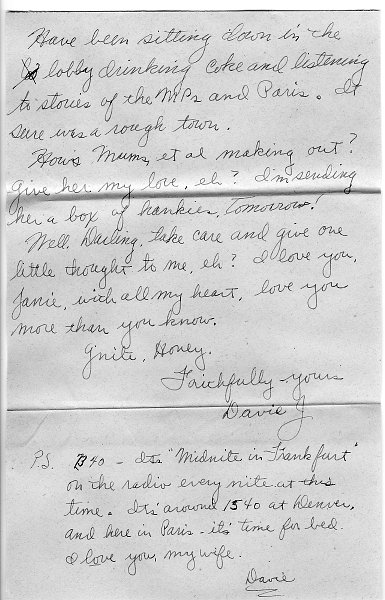 Have been sitting down in the
lobby drinking coke and listening
to stories of the MPs and Paris. It
sure was a rough town.
Hows Mums, et al making out?
Give her my love, eh? I'm sending
her a box of hankies, tomorrow!
Well, Darling, take care and give one
little thought to me, eh? I love you,
Janie, with all my heart, love you
more than you know.
Gnite, Honey.
Faithfully - yours
Davie J
P.S. - Its "Midnite in Frankfurt"
on the radio every nite at this
time. Its around 1540 at Denver,
and here in Paris - it's time for bed.
I love you, my wife.
Davie